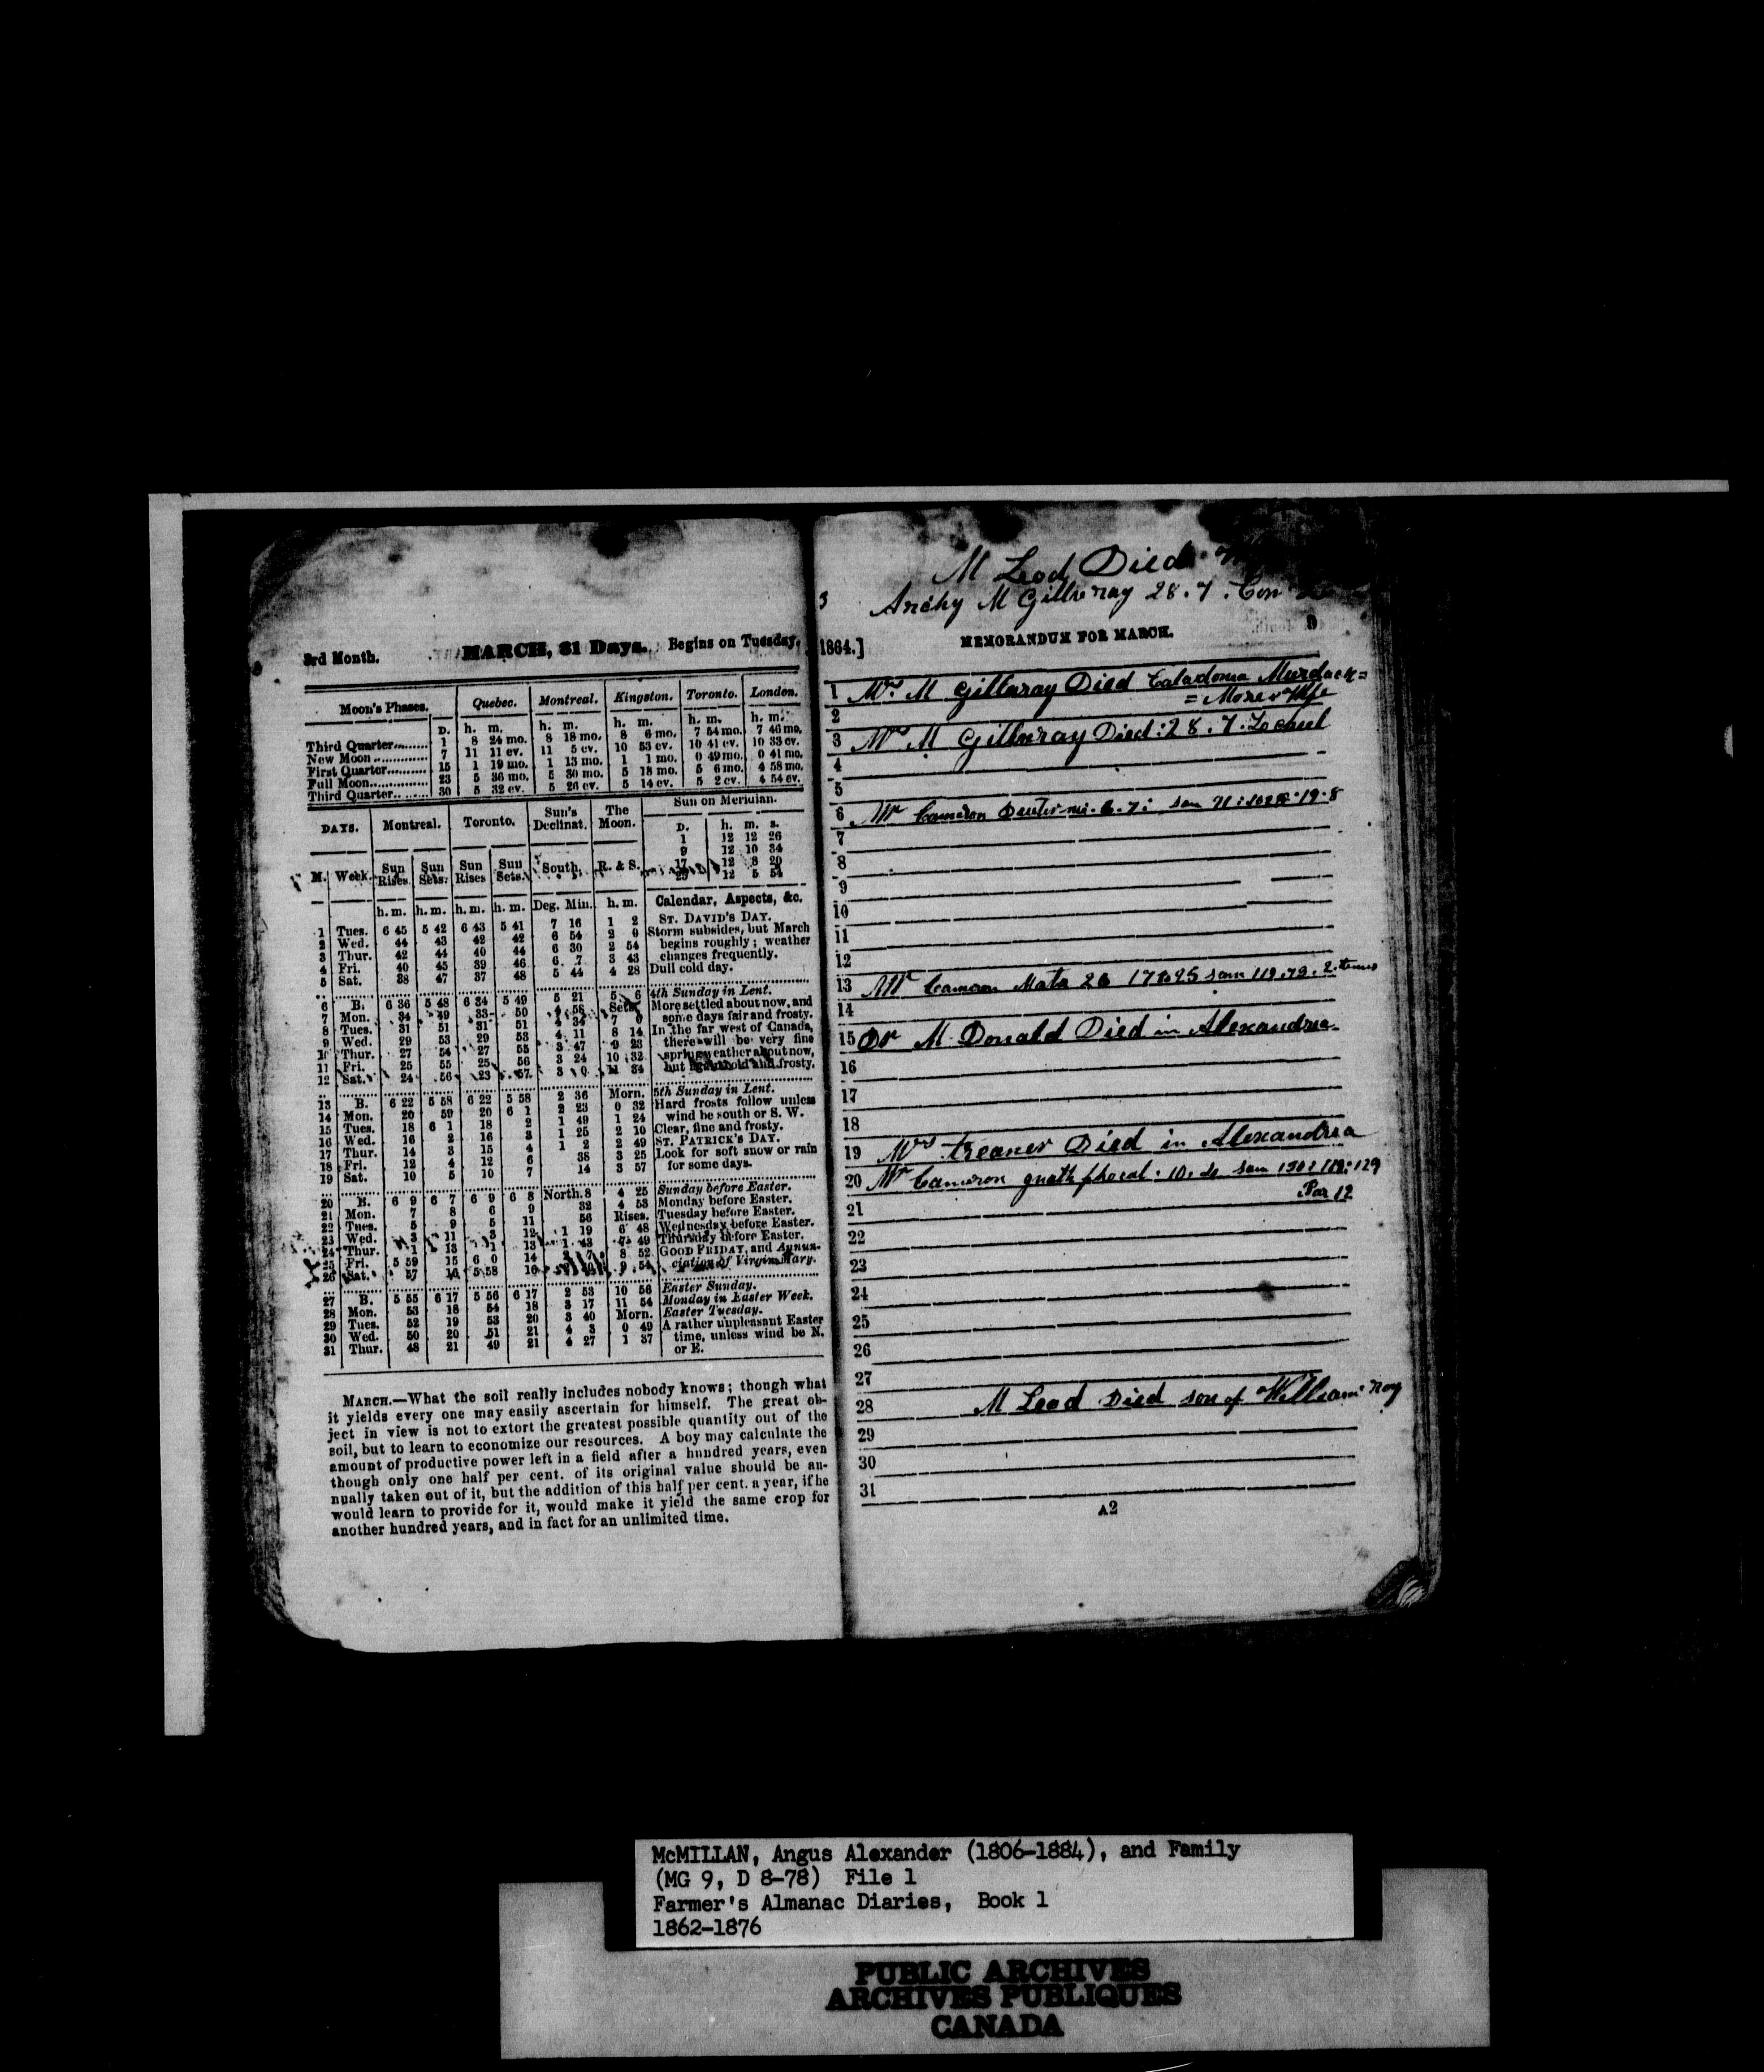 3rd Month. MARCH, 31 Days. Begins on Tuesday.
Moon's Phases. Quebec. Montreal. Kingston. Toronto. London.
D. h. m. h. m. h. m. h. m. h. m.
Third Quarter........ 1 8 24 mo. 8 18 mo. 8 6 mo. 7 54 mo. 7 46 mo.
New Moon.............. 7 11 11 ev. 11 5 ev. 10 53 ev. 10 41 ev. 10 33 ev.
First Quarter.......... 15 1 19 mo. 1 13 mo. 1 1 mo. 0 49 mo. 0 41 mo.
Full Moon.............. 23 5 36 mo. 5 30 mo. 5 18 mo. 5 6 mo. 4 58 mo.
Third Quarter......... 30 5 32 ev. 5 26 ev. 5 14 ev. 5 2 ev. 4 54 ev.
DAYS. Montreal. Toronto. Sun's Declinat. The Moon. Sun on Meridian.
D. h. m. s.
1 12 12 26
9 12 10 34
17 12 8 20
25 12 5 54
M. Week. Sun Rises. Sun Sets. Sun Rises Sun Sets. South. R. & S.
h. m. h. m. h. m. h. m. Deg. Min. h. m. Calendar, Aspects, &c.
1 Tues. 6 45 5 42 6 43 5 41 7 16 1 2 ST. DAVID'S DAY.
2 Wed. 44 43 42 42 6 54 2 0 Storm subsides, but March
3 Thur. 42 44 40 44 6 30 2 54 begins roughly; weather
4 Fri. 40 45 39 46 6 7 3 43 changes frequently.
5 Sat. 38 47 37 48 5 44 4 28 Dull cold day.
6 B. 6 36 5 48 6 34 5 49 5 21 5 6 4th Sunday in Lent.
7 Mon. 34 49 33 50 4 58 Sets. More settled about now, and
8 Tues. 31 51 31 51 4 34 7 0 some days fair and frosty.
9 Wed. 29 53 29 53 4 11 8 14 In the far west of Canada,
10 Thur. 27 54 27 55 3 47 9 23 there will be very fine
11 Fri. 25 55 25 56 3 24 10 32 spring weather about now,
12 Sat. 24 56 23 57 3 0 11 34 but cold and frosty.
13 B. 6 22 5 58 6 22 5 58 2 36 Morn. 5th Sunday in Lent.
14 Mon. 20 59 20 6 1 2 23 0 32 Hard frosts follow unless
15 Tues. 18 6 1 18 2 1 49 1 24 wind be south or S. W.
16 Wed. 16 2 16 3 1 25 2 10 Clear, fine and frosty.
17 Thur. 14 3 15 4 1 2 2 49 ST. PATRICK'S DAY.
18 Fri. 12 4 12 6 38 3 25 Look for soft snow or rain
19 Sat. 10 5 10 7 14 3 57 for some days.
20 B. 6 9 6 7 6 9 6 8 North. 8 4 25 Sunday before Easter.
21 Mon. 7 8 6 9 32 4 53 Monday before Easter.
22 Tues. 5 9 5 11 56 Rises. Tuesday before Easter.
23 Wed. 3 11 3 12 1 19 6 48 Wednesday before Easter.
24 Thur. 1 13 1 13 1 43 7 49 Thursday before Easter.
25 Fri. 5 59 15 6 0 14 2 7 8 52 GOOD FRIDAY, and Annun-
26 Sat. 57 16 5 58 16 9 54 ciation of Virgin Mary.
27 B. 5 55 6 17 5 56 6 17 2 53 10 56 Easter Sunday.
28 Mon. 53 18 54 18 3 17 11 54 Monday in Easter Week.
29 Tues. 52 19 53 20 3 40 Morn. Easter Tuesday.
30 Wed. 50 20 51 21 4 3 0 49 A rather unpleasant Easter
31 Thur. 48 21 49 21 4 27 1 37 time, unless wind be N.
or E.
MARCH.—What the soil really includes nobody knows; though what
it yields every one may easily ascertain for himself. The great ob-
ject in view is not to extort the greatest possible quantity out of the
soil, but to learn to economize our resources. A boy may calculate the
amount of productive power left in a field after a hundred years, even
though only one half per cent. of its original value should be an-
nually taken out of it, but the addition of this half per cent. a year, if he
would learn to provide for it, would make it yield the same crop for
another hundred years, and in fact for an unlimited time.
M Leod Died
3 Archy M Gillivray 28. 7. Con
9
1864.] MEMORANDUM FOR MARCH.
1 Mrs M Gillivray Died Caladonia Murdack=
= More
2
3 Mrs M Gillivray Died: 28. 7. Locheil
4
5
6 Mr Cameron 6. 7: 19. 8
7
8
9
10
11
12
13 Mr Cameron Mata 26 17 to 25 sam 119. 73. 2. times
14
15 Dr M Donald Died in Alexandria
16
17
18
19 Mrs Keaner Died in Alexandria
20 Mr Cameron gnath phocal: 10. do sam 130: 119: 129
Par 12
21
22
23
24
25
26
27
28 M Leod Died son of William Roy
29
30
31
A2
McMILLAN, Angus Alexander (1806-1884), and Family
(MG 9, D 8-78) File 1
Farmer's Almanac Diaries, Book 1
1862-1876
PUBLIC ARCHIVES
ARCHIVES PUBLIQUES
CANADA